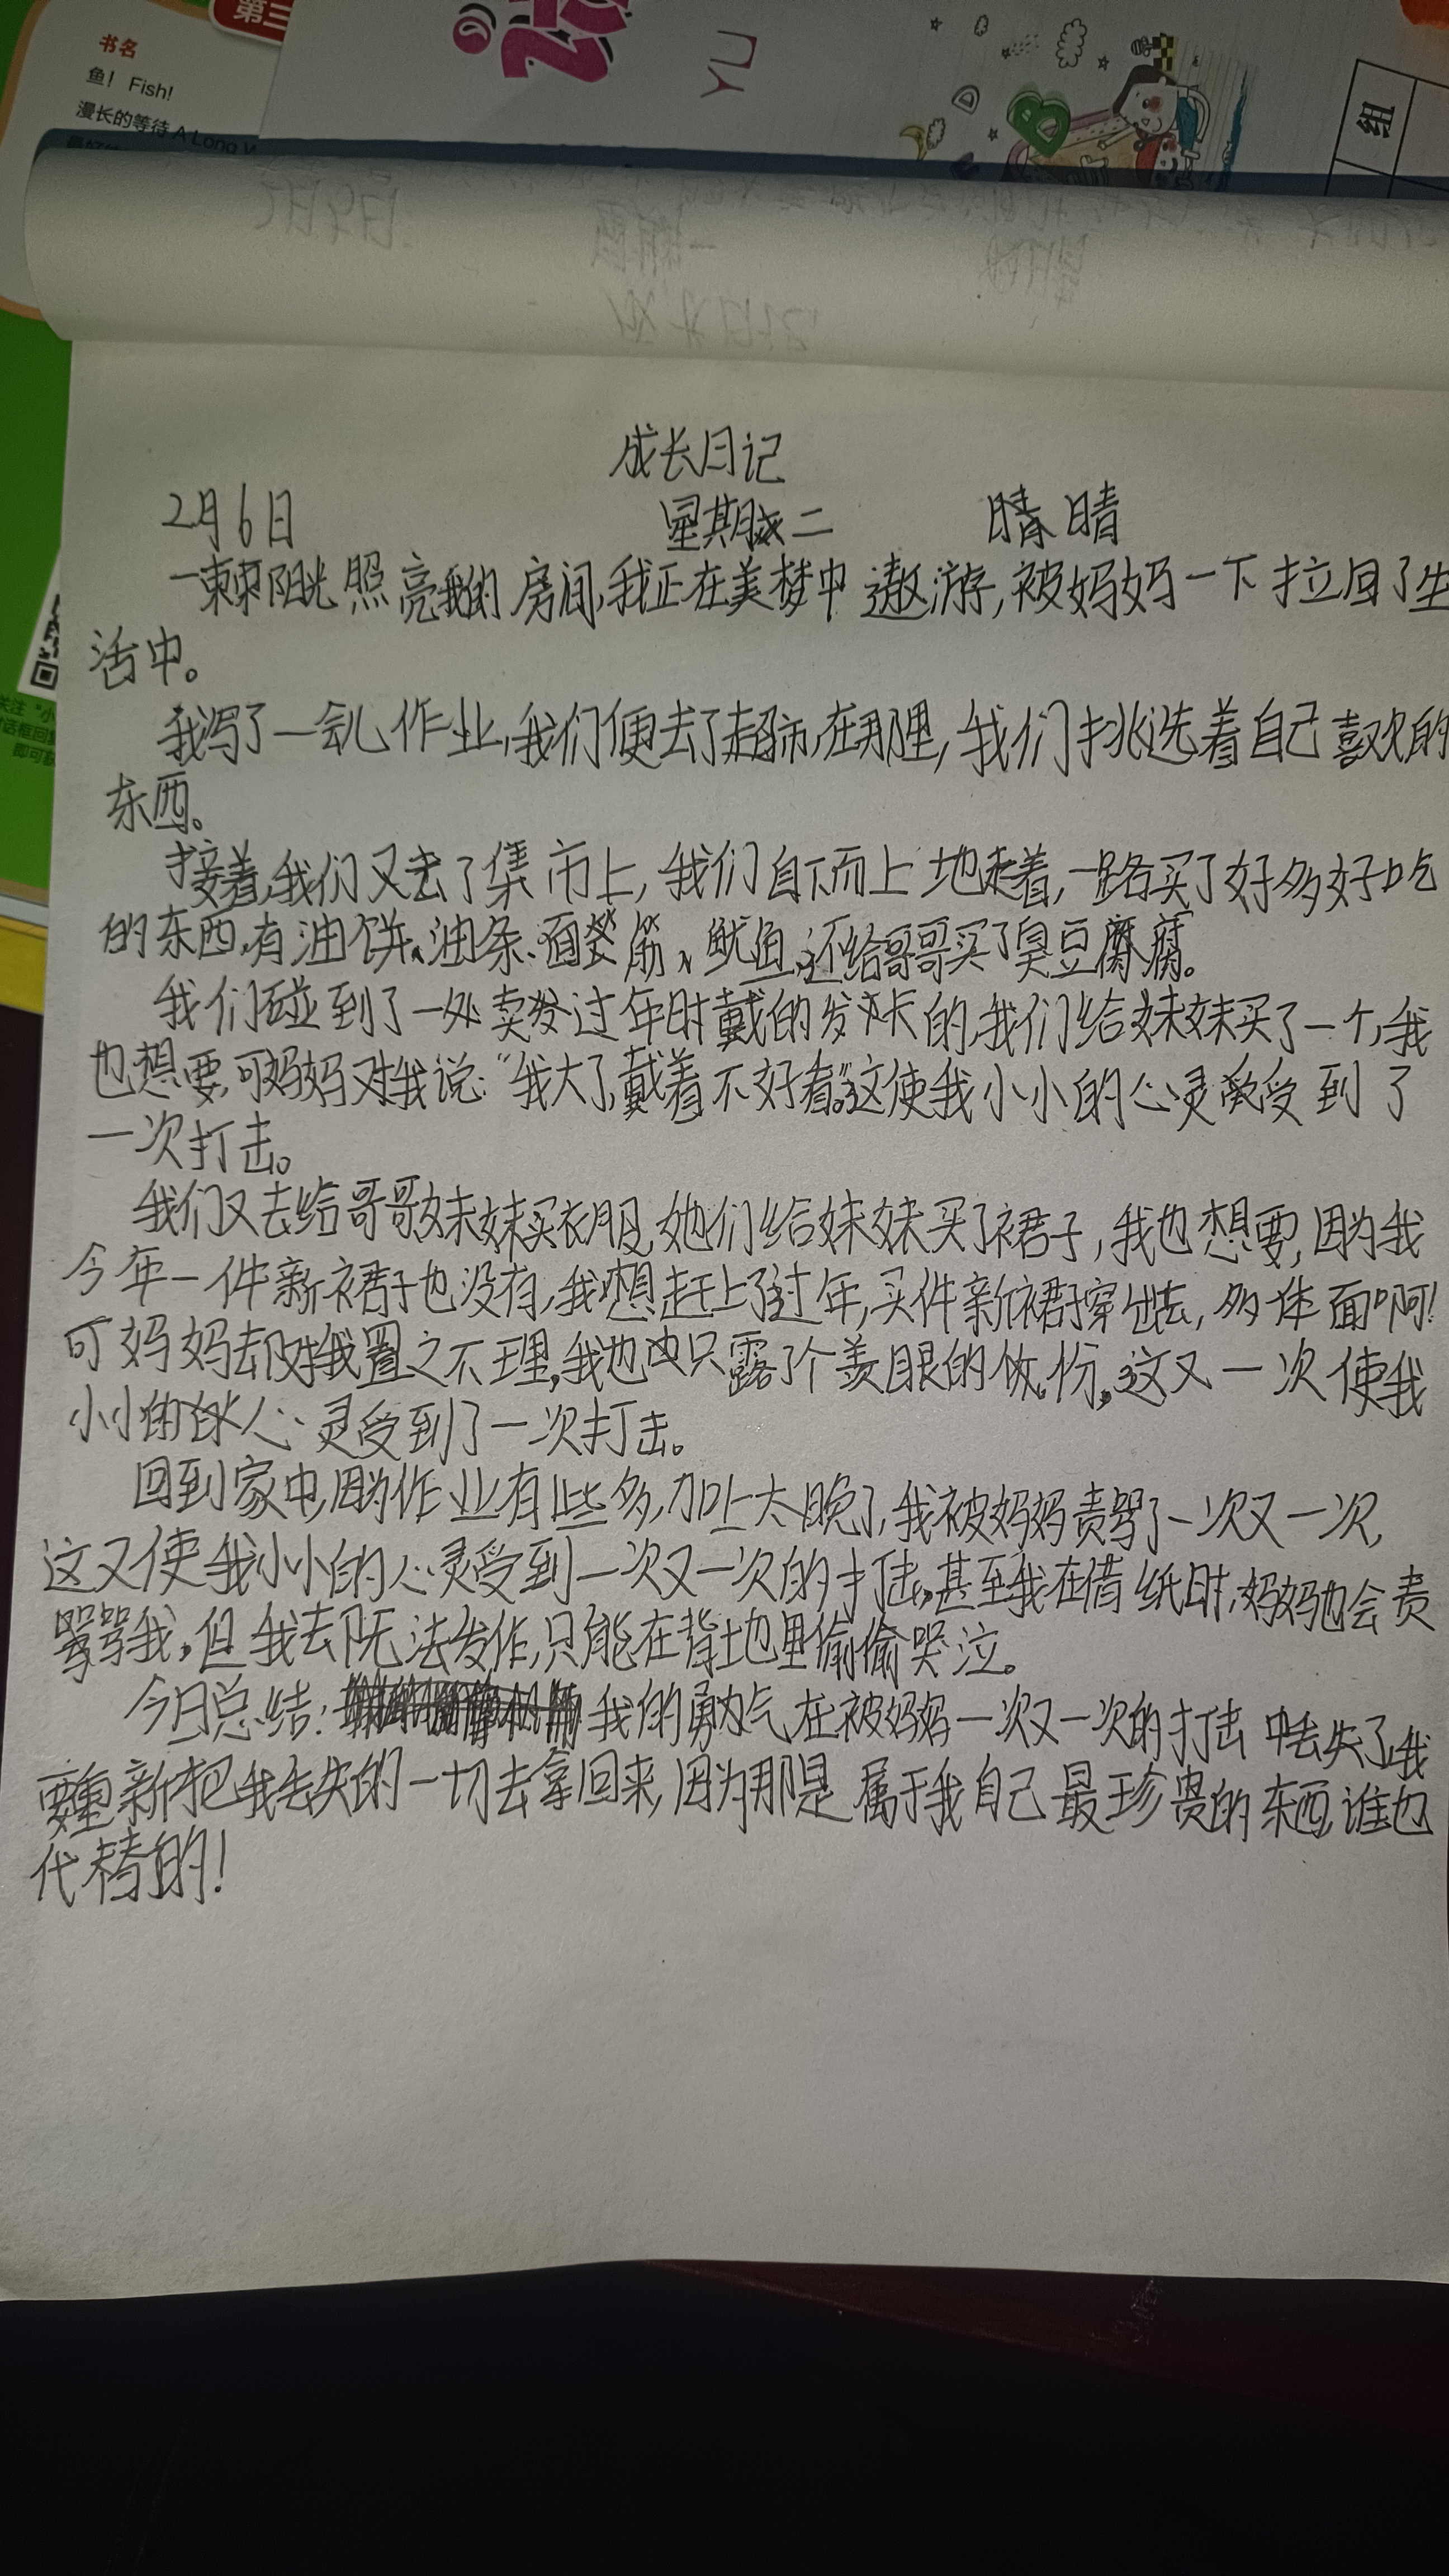 第三
书名
鱼！ Fish!
漫长的等待 A Long
YU
组
成长日记
2月6日 星期二 晴
一束阳光照亮我的房间,我正在美梦中遨游,被妈妈一下拉回了生
活中。
我写了一会儿作业,我们便去了超市,在那里,我们挑选着自己喜欢的
东西。
接着,我们又去了集市上,我们自下而上地走着,一路买了好多好吃
的东西,有油饼、油条、面筋、鱿鱼,还给哥哥买了臭豆腐。
我们碰到了一处卖过年时戴的发卡的,我们给妹妹买了一个,我
也想要,可妈妈对我说:“我大了,戴着不好看。”这使我小小的心灵受到了
一次打击。
我们又去给哥哥妹妹买衣服,她们给妹妹买了裙子,我也想要,因为我
今年一件新裙子也没有,我想赶上了过年,买件新裙子穿出去,多体面啊!
可妈妈却对我置之不理,我也只露了个羡眼的份。这又一次使我
小小的心灵受到了一次打击。
回到家中,因为作业有些多,加上太晚了,我被妈妈责骂了一次又一次,
这又使我小小的心灵受到一次又一次的打击,甚至我在借纸时,妈妈也会责
骂我,但我却无法发作,只能在背地里偷偷哭泣。
今日总结: 我的勇气在被妈妈一次又一次的打击中丢失了,我
要重新把我丢失的一切去拿回来,因为那是属于我自己最珍贵的东西,谁也
代替的!
关注“小
话框回复
即可获